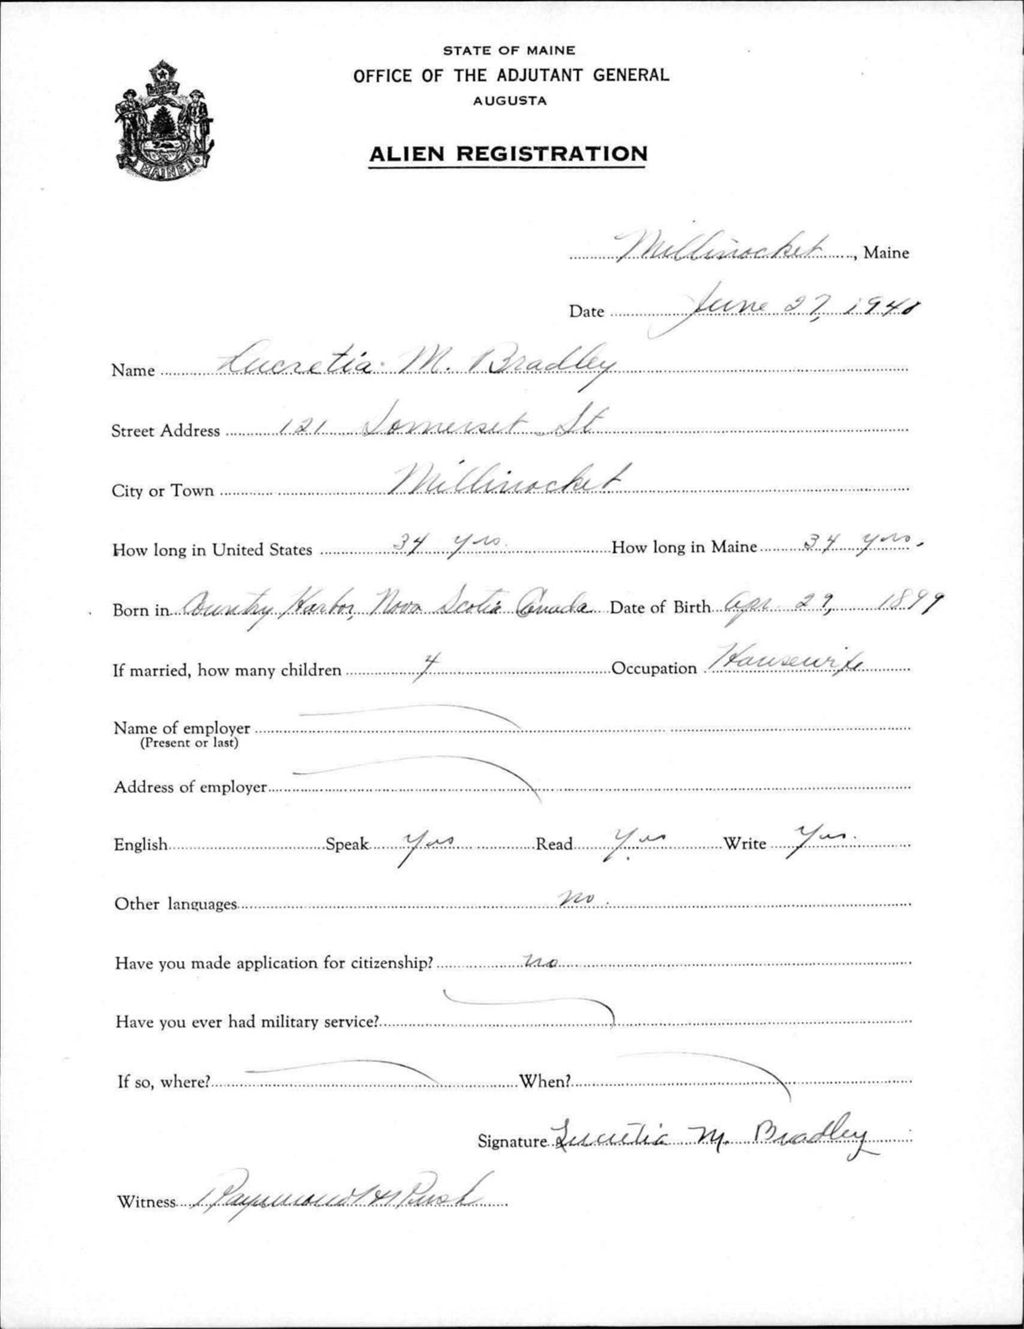 STATE OF MAINE
OFFICE OF THE ADJUTANT GENERAL
AUGUSTA
MAINE
ALIEN REGISTRATION
Millinocket, Maine
Date June 27, 1940
Name Lucretia M. Bradley
Street Address 121 Somerset St
City or Town Millinocket
How long in United States 34 yrs. How long in Maine 34 yrs.
Born in Country Harbor, Nova Scotia Canada Date of Birth Apr. 29, 1899
If married, how many children 4 Occupation Housewife
Name of employer
(Present or last)
Address of employer
English Speak Yes Read Yes Write Yes.
Other languages no.
Have you made application for citizenship? no
Have you ever had military service?
If so, where? When?
Signature Lucretia M. Bradley
Witness Raymond H Rush